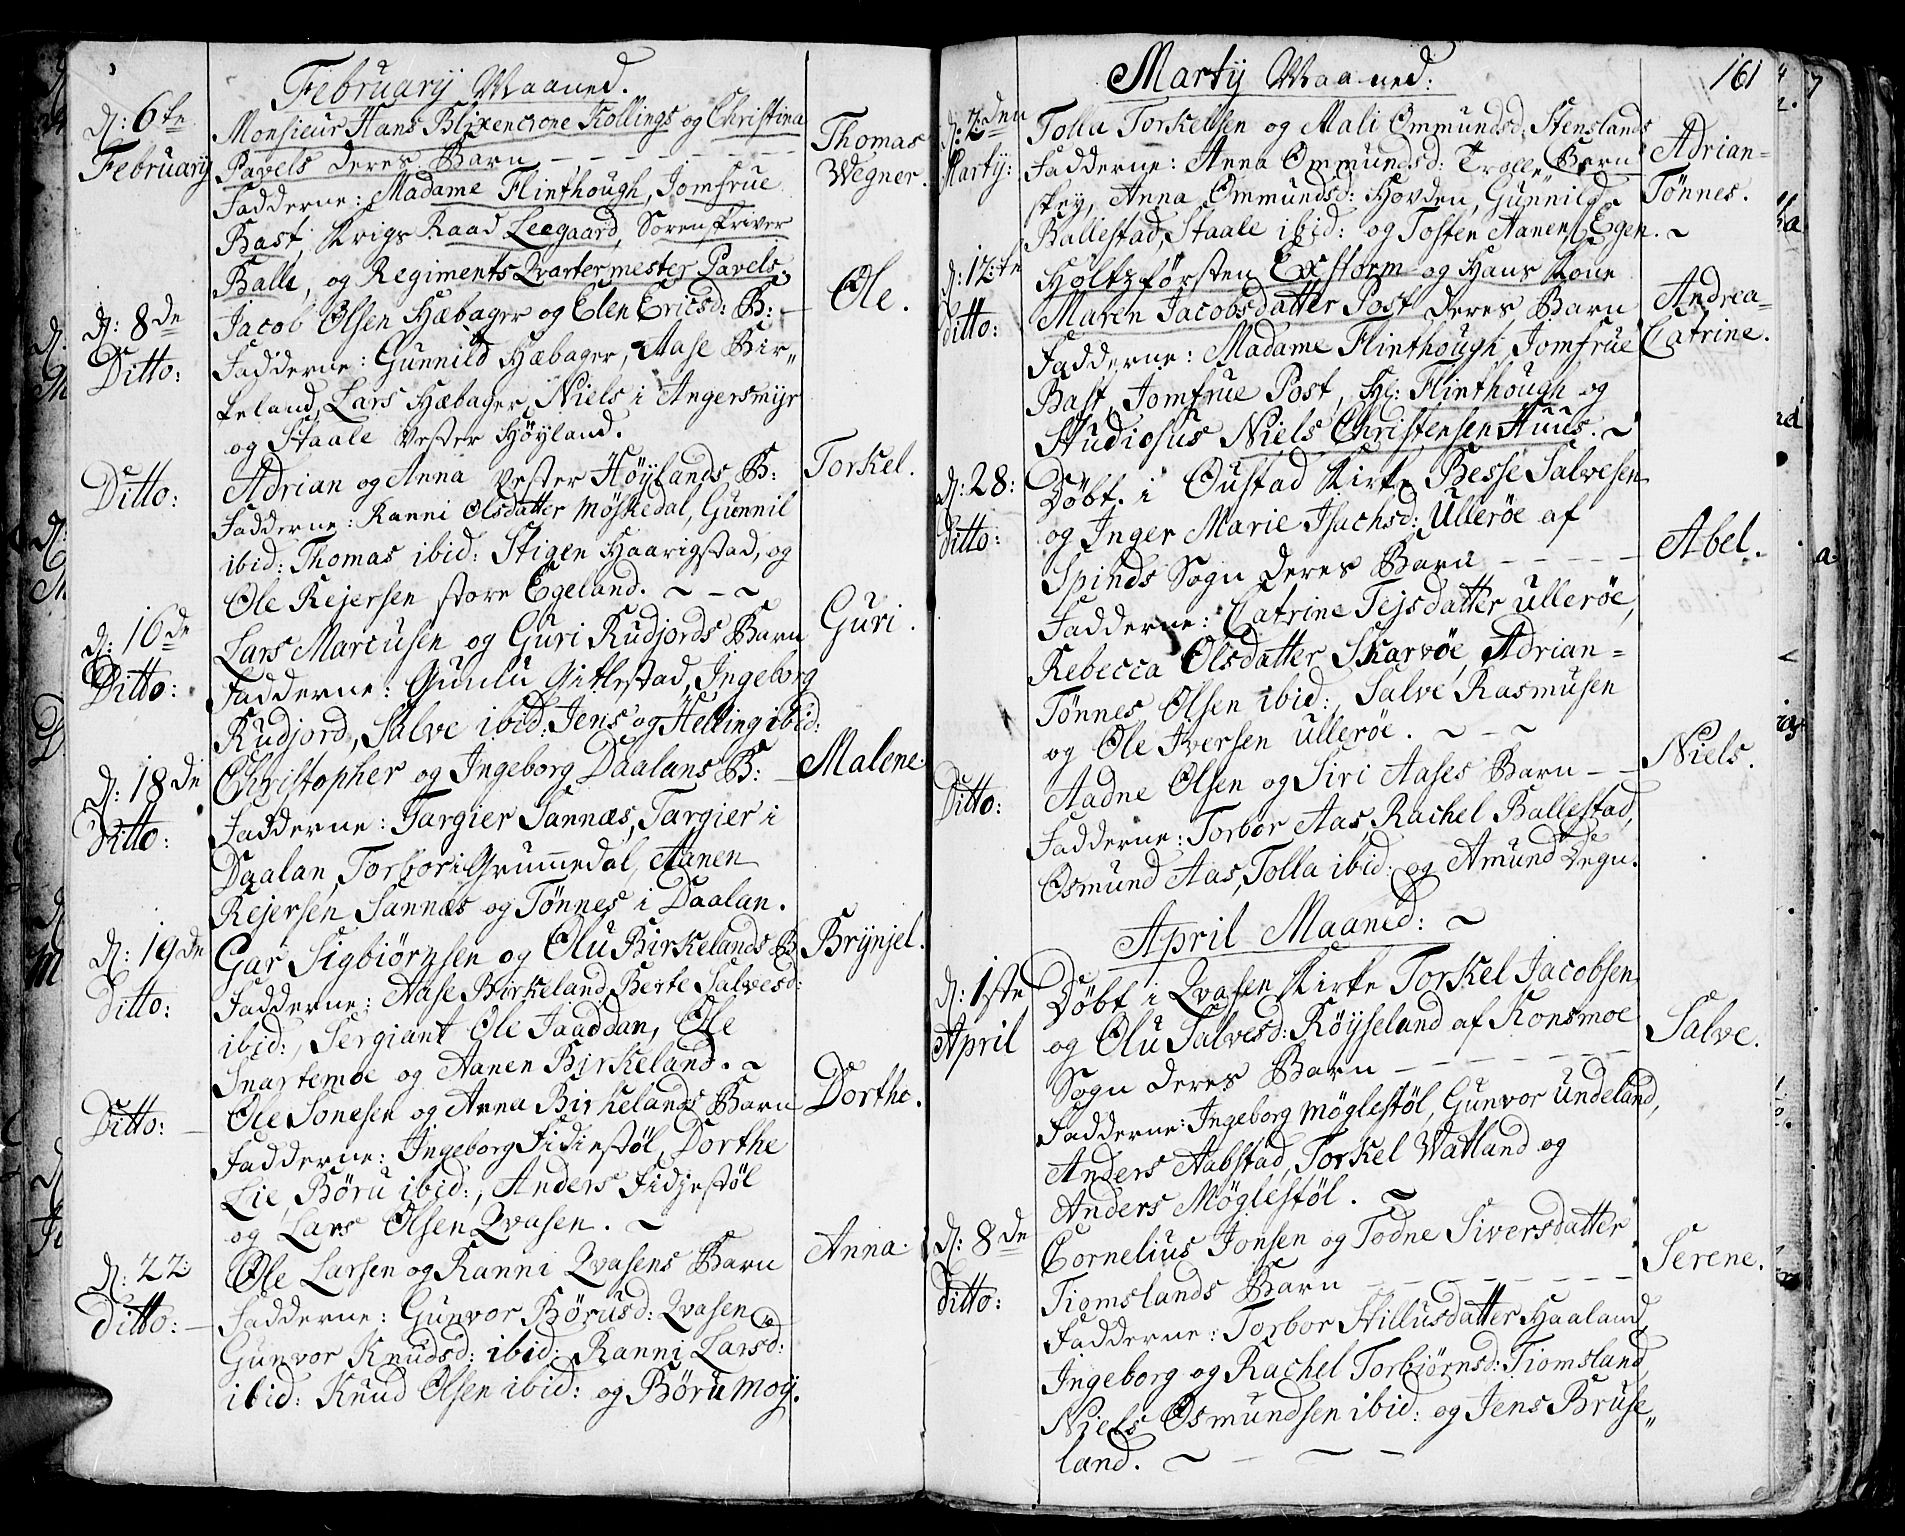 Februarÿ Maaned.
d: 6te
Februarÿ
Monsieur Hans Blixencrone Kollings og Christina
Pavels deres Barn
Thomas
Wegner.
Fadderne: Madame Flinthough, Jomfrue
Bast, Krigs Raad Leegaard, Sorenskriver
Balle, og Regiments Qvartermester Pavels.
d: 8de
Ditto:
Jacob Olsen Hæbager og Elen Ericsd: B:
Ole.
Fadderne: Gunnild Hæbager, Aase Bir„
keland, Lars Hæbager, Niels i Angersmÿr
og Staale Vester Höÿland.
Ditto:
Adrian og Anna Vester Höÿlands B:
Torkel.
Fadderne: Ranni Olsdatter Möskedal, Gunnil
ibid: Thomas ibid: Stigen Haarigstad, og
Ole Rejersen store Egeland.
d: 16de
Ditto:
Lars Marcusen og Guri Rudjords Barn
Guri.
Fadderne: Gunlu Gitlestad, Ingeborg
Rudjord, Salve ibid: Jens og Helling ibid:
d: 18de
Ditto:
Christopher og Ingeborg Daalans B:
Malene.
Fadderne: Targier Sannæs, Targier i
Daalan, Torbor i Grummedal, Aanen
Rejersen Sannæs og Tönnes i Daalan.
d: 19de
Ditto:
Gar Sigbiörnsen og Olu Birkelands B
Brÿnjel.
Fadderne: Aase Birkeland, Berte Salvesd:
ibid:, Sergiant Ole Jaaddan, Ole
Snartemoe og Aanen Birkeland.
Ditto:
Ole Sonesen og Anna Birkelands Barn
Dorthe.
Fadderne: Ingeborg Fidiestöl, Dorthe
Lie, Böru ibid:, Anders Fidjestöl
og Lars Olsen Qvasen.
d: 22:
Ditto:
Ole Larsen og Ranni Qvasens Barn
Anna.
Fadderne: Gunvor Börusd: Qvasen
Gunvor Knudsd: ibid: Ranni Larsd:
ibid: Knud Olsen ibid: og Böru Moÿ.
Martÿ Maaned:
161
d: 2den
Martÿ:
Tolla Torkelsen og Mali Ommundsd: Stenslands
Barn
Adrian=
Tönnes.
Fadderne: Anna Ommundsd: Trolle„
skeÿ, Anna Ommundsd: Hovden, Gunnild
Ballestad, Staale ibid: og Tosten Aanens Egen.
d: 12te
Ditto:
Holtzförsten Exstorm og Hans Kone
Maren Jacobsdatter Post deres Barn
Andrea=
Catrine.
Fadderne: Madame Flinthough, Jomfrue
Bast, Jomfrue Post, Hr: Flinthough og
Studiosus Niels Christensen Huus.
d: 28:
Ditto:
Döbt i Oustad Kirke Besse Salvesen
og Inger Marie Isachsd: Ulleröe af
Spinds Sogn deres Barn
Abel.
Fadderne: Catrine Tejsdatter Ulleröe,
Rebecca Olsdatter Skarvöe, Adrian=
Tönnes Olsen ibid:, Salve Rasmusen
og Ole Iversen Ulleröe.
Ditto:
Aadne Olsen og Siri Aases Barn
Niels.
Fadderne: Torbor Aas, Rachel Ballestad,
Osmund Aas, Tolla ibid: og Amund Degn.
April Maaned:
d: 1ste
April
Döbt i Qvasen Kirke Torkel Jacobsen
og Olu Salvesd: Röÿseland af Konsmoe
Sogn deres Barn
Salve.
Fadderne: Ingeborg Möglestöl, Gunvor Undeland,
Anders Aabstad, Torkel Watland og
Anders Möglestöl.
d: 8de
Ditto:
Cornelius Jonsen og Todne Siversdatter
Tiomslands Barn
Serene.
Fadderne: Torbor Stillusdatter Haaland,
Ingeborg og Rachel Torbiörnsd: Tiomsland,
Niels Osmundsen ibid: og Jens Bruse„
land.